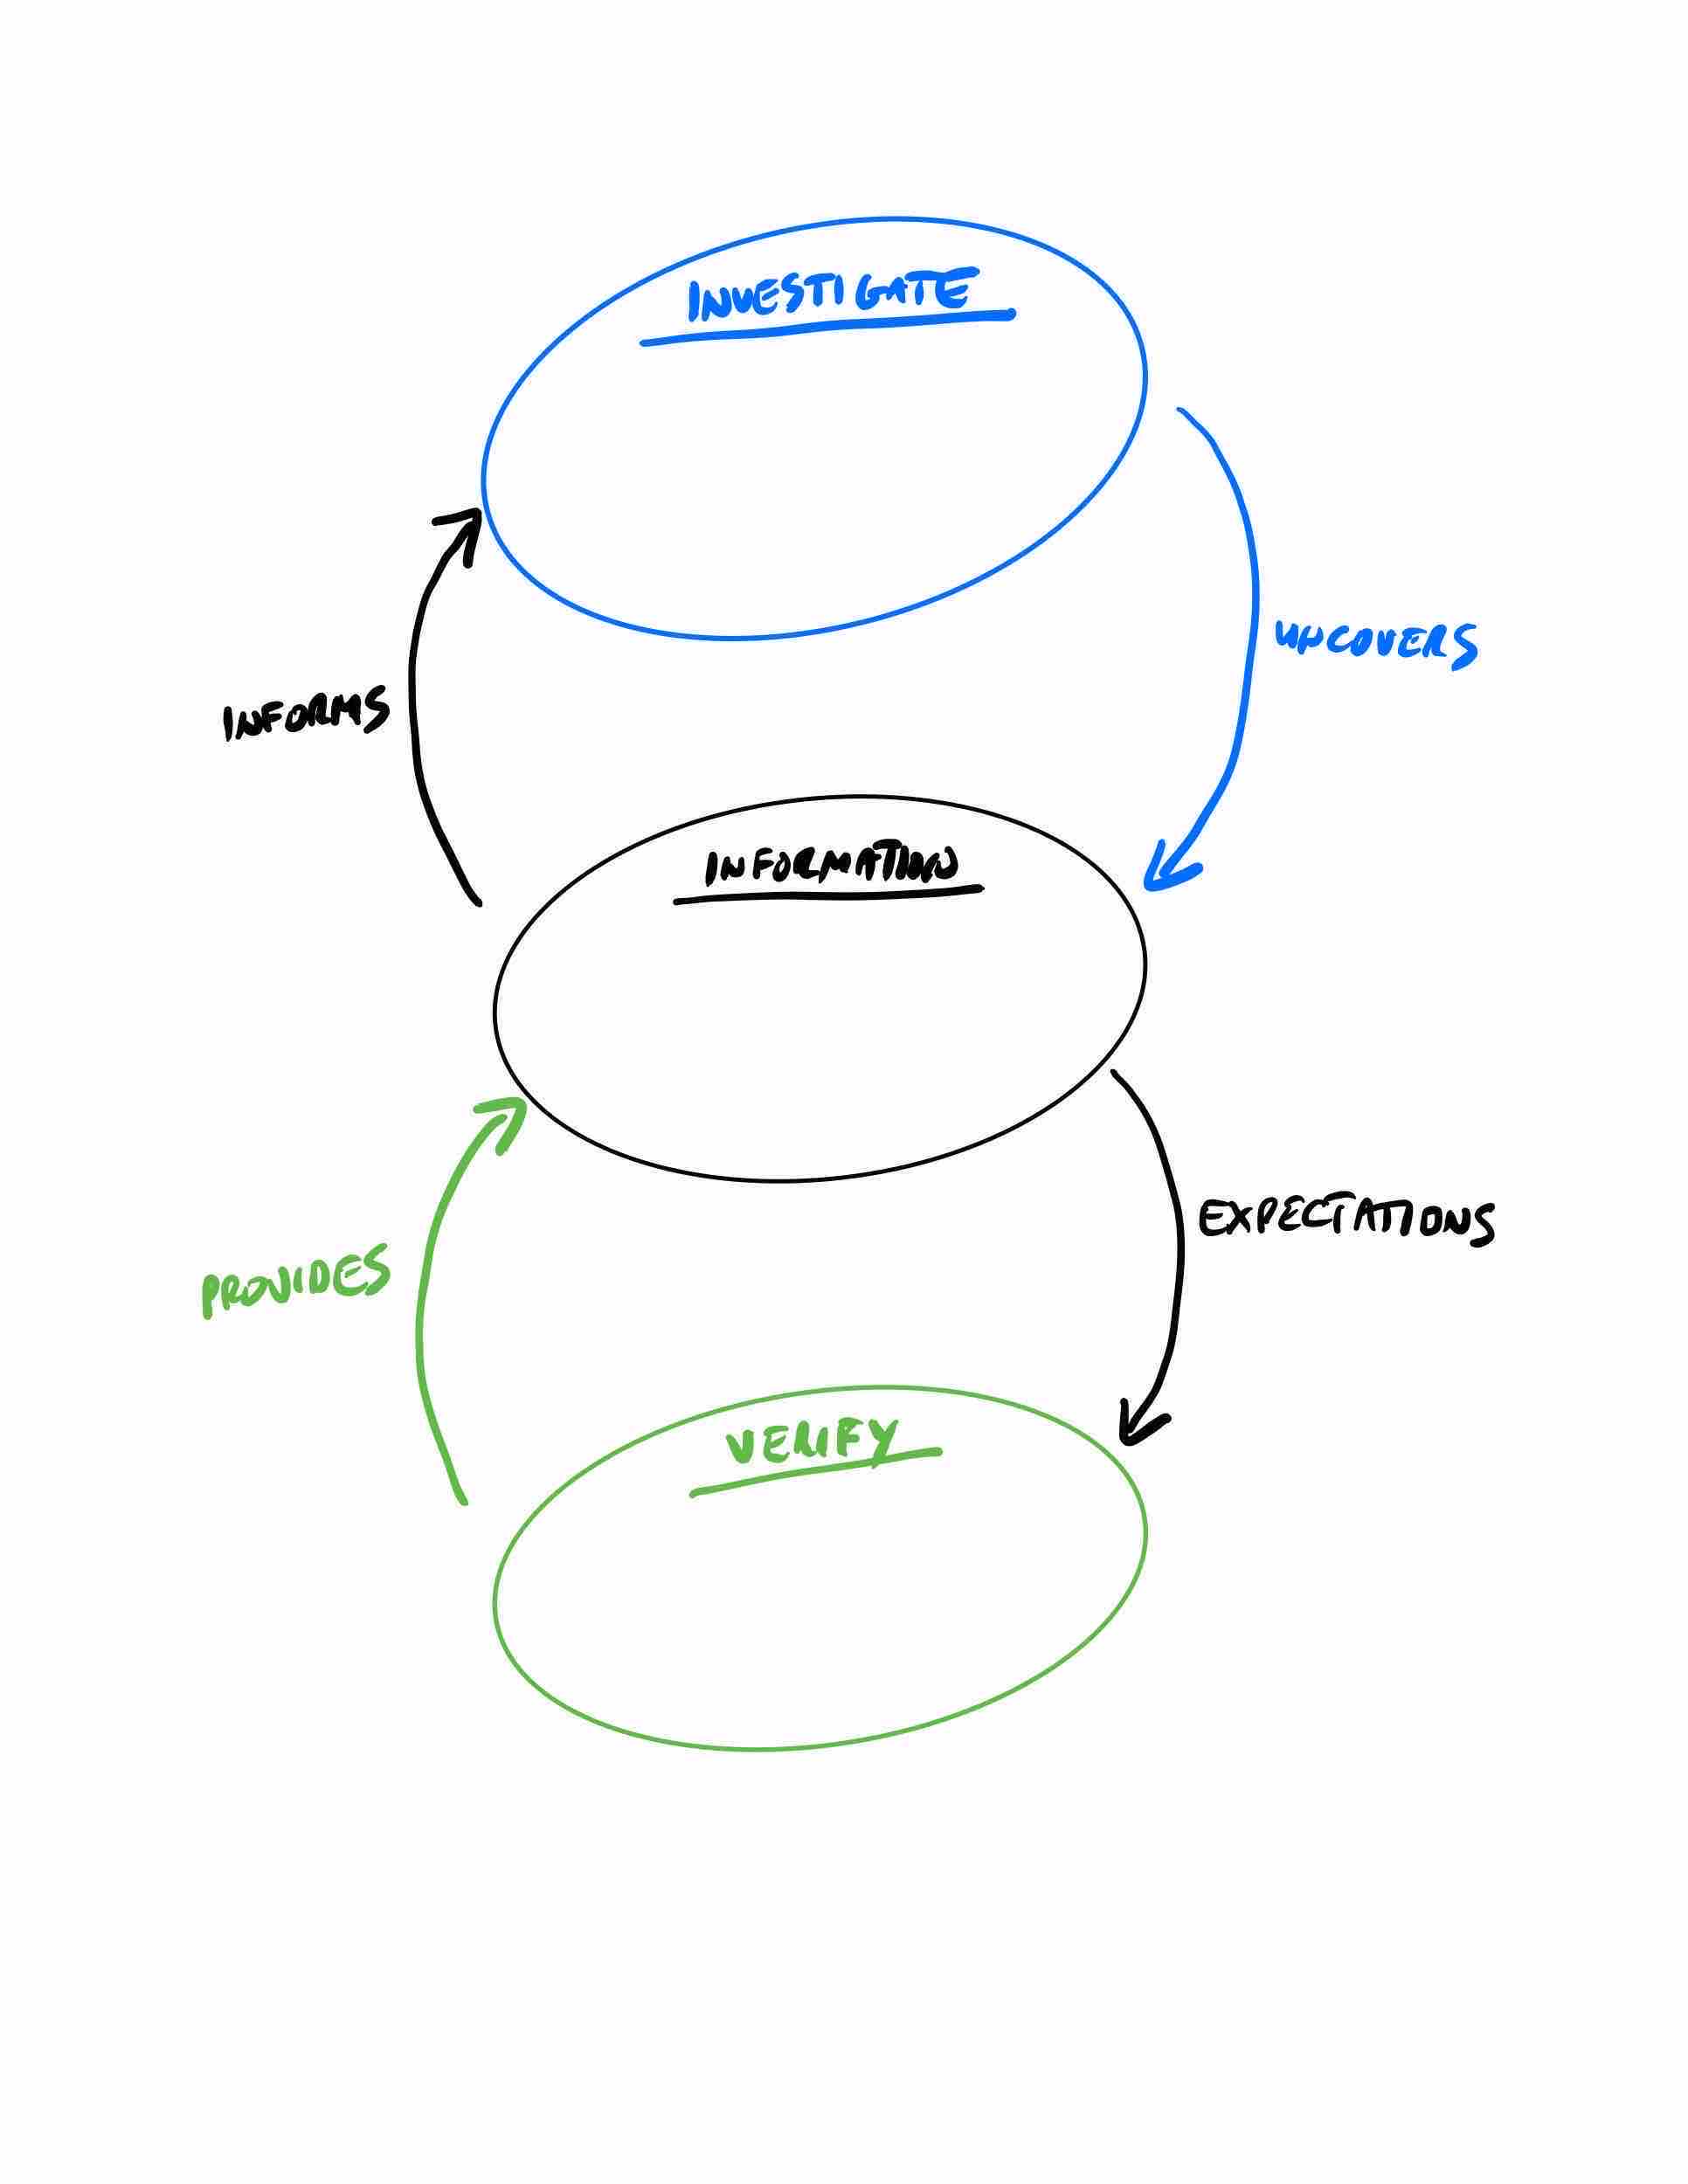 INVESTIGATE
UNCOVERS
INFORMS
INFORMATION
EXPECTATIONS
PROVIDES
VERIFY